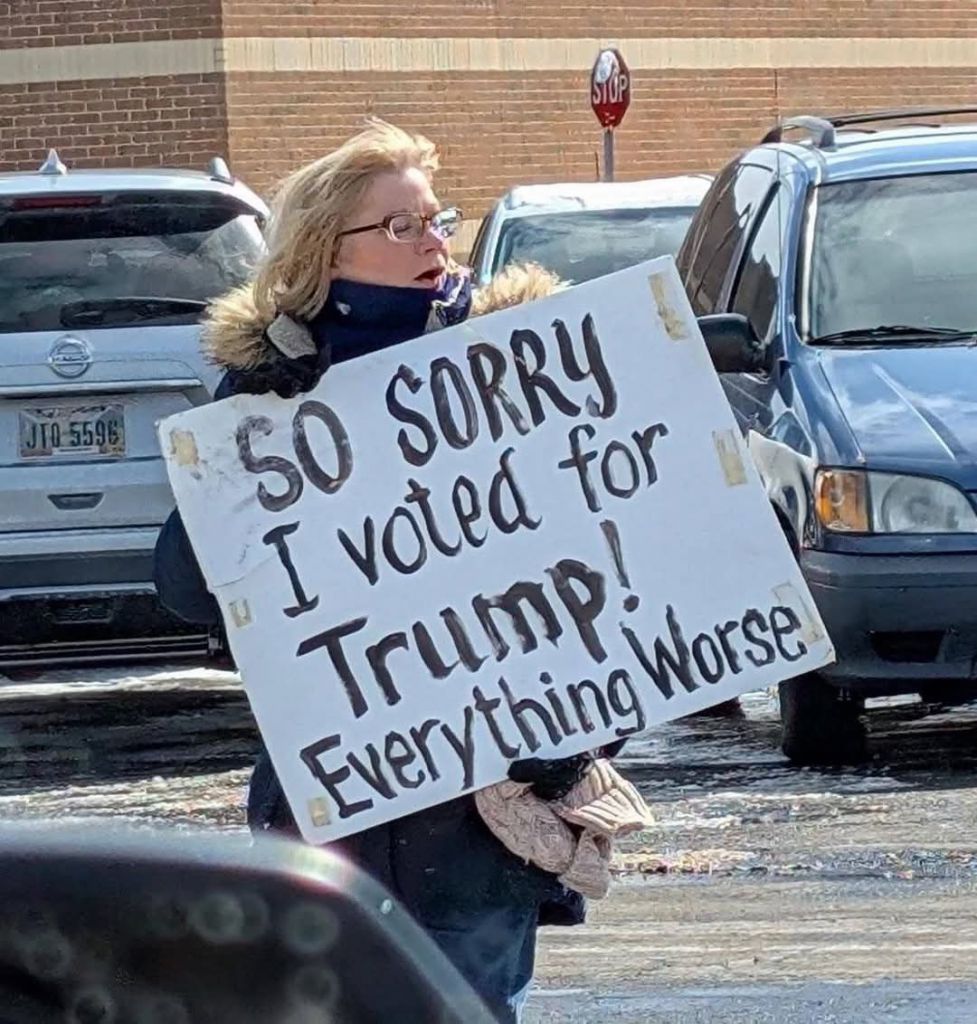 STOP
JTQ 5596
SO SORRY
I voted for
Trump!
Everything Worse